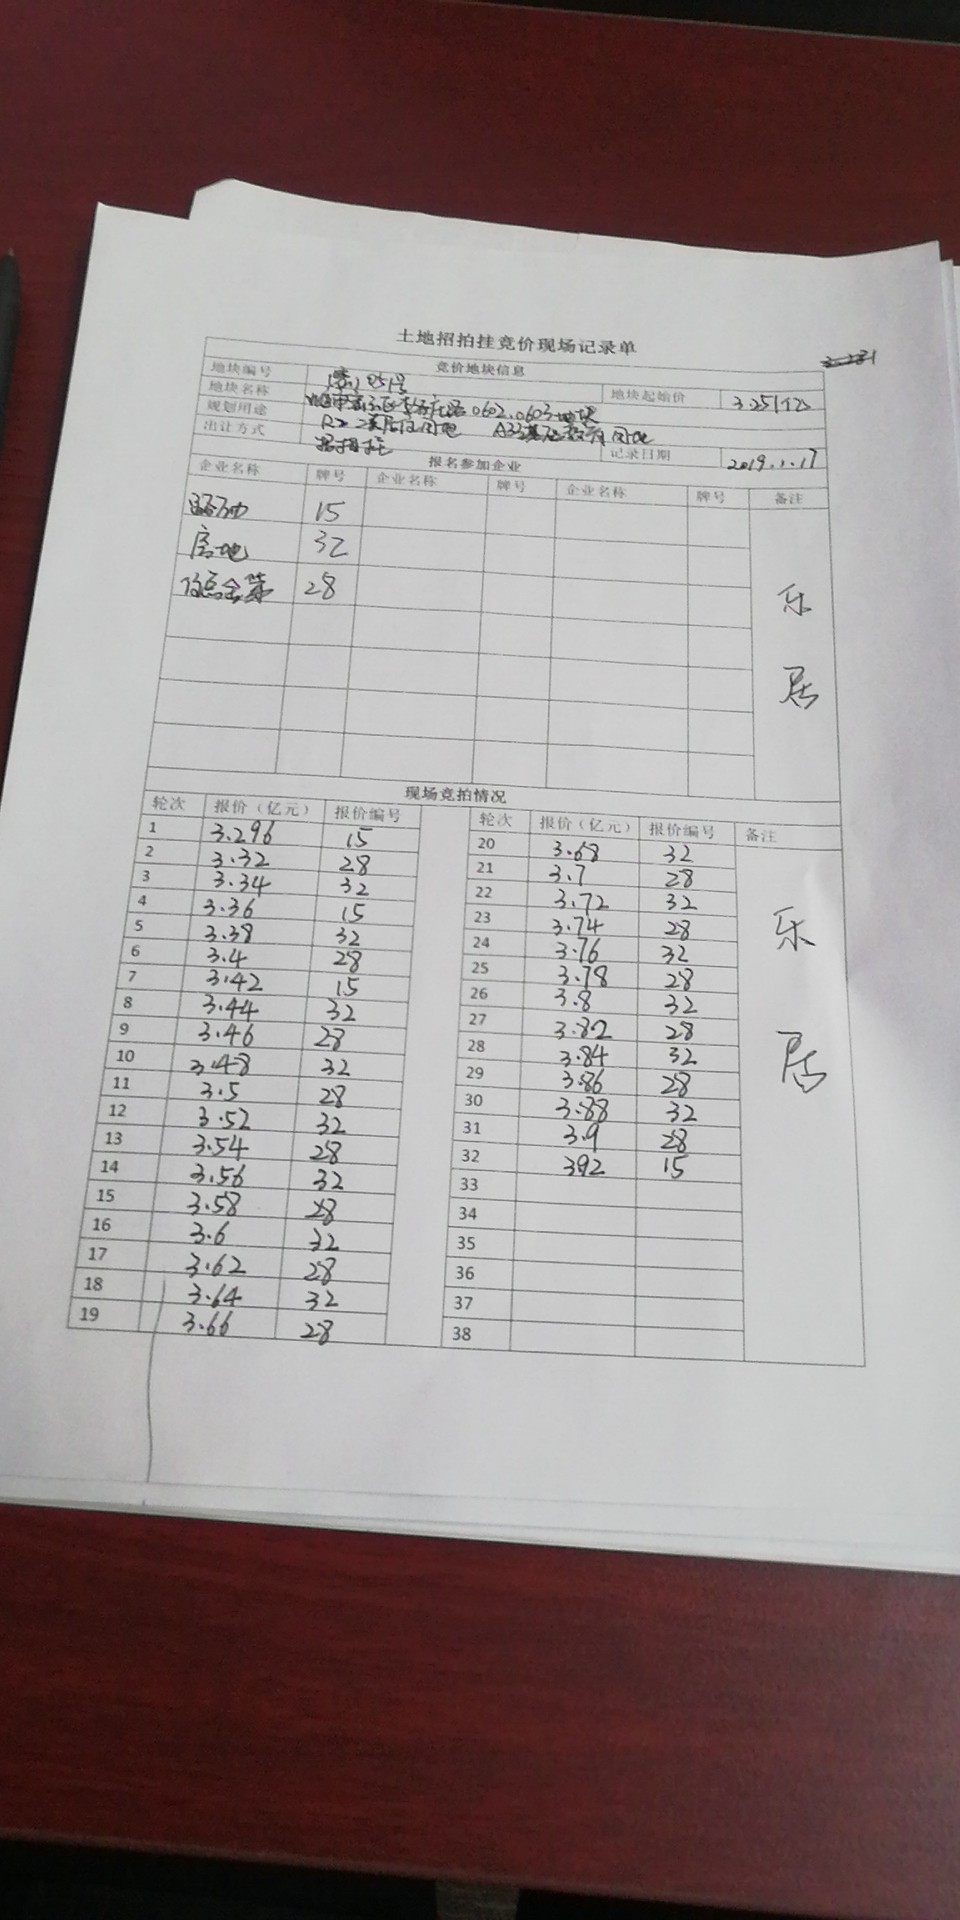 土地招拍挂竞价现场记录单
竞价地块信息
地块编号 051号 地块起始价 3.251亿
地块名称 0602、0603地块
规划用途 R2二类居住用地 A33基础教育用地
出让方式 记录日期 2019.1.17
报名参加企业
企业名称 牌号 企业名称 牌号 企业名称 牌号 备注
15
房地 32
28
乐
居
现场竞拍情况
轮次 报价（亿元） 报价编号 轮次 报价（亿元） 报价编号 备注
1 3.296 15 20 3.68 32
2 3.32 28 21 3.7 28
3 3.34 32 22 3.72 32
4 3.36 15 23 3.74 28
5 3.38 32 24 3.76 32
6 3.4 28 25 3.78 28
7 3.42 15 26 3.8 32
8 3.44 32 27 3.82 28
9 3.46 28 28 3.84 32
10 3.48 32 29 3.86 28
11 3.5 28 30 3.88 32
12 3.52 32 31 3.9 28
13 3.54 28 32 392 15
14 3.56 32 33
15 3.58 28 34
16 3.6 32 35
17 3.62 28 36
18 3.64 32 37
19 3.66 28 38
乐
居